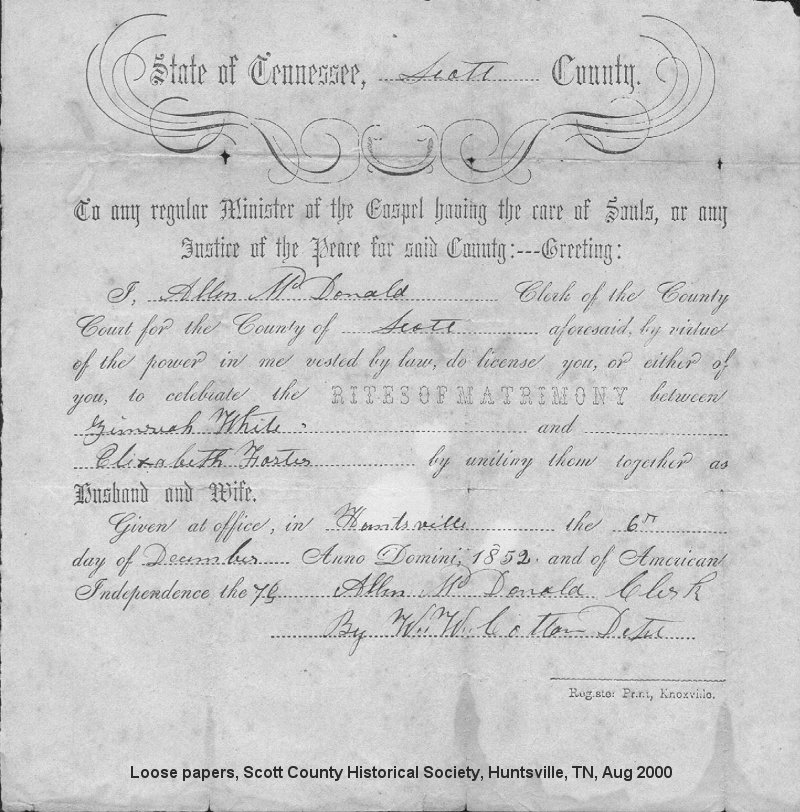 State of Tennessee, Scott County.
To any regular Minister of the Gospel having the care of Souls, or any
Justice of the Peace for said County:---Greeting:
I, Allen McDonald Clerk of the County
Court for the County of Scott aforesaid, by virtue
of the power in me vested by law, do license you, or either of
you, to celebrate the RITES OF MATRIMONY between
White and
Elizabeth Foster by uniting them together as
Husband and Wife.
Given at office, in Huntsville the 6th
day of December Anno Domini, 1852. and of American
Independence the Allen McDonald Clerk
By W. W. Cotton
Register Print, Knoxville.
Loose papers, Scott County Historical Society, Huntsville, TN, Aug 2000